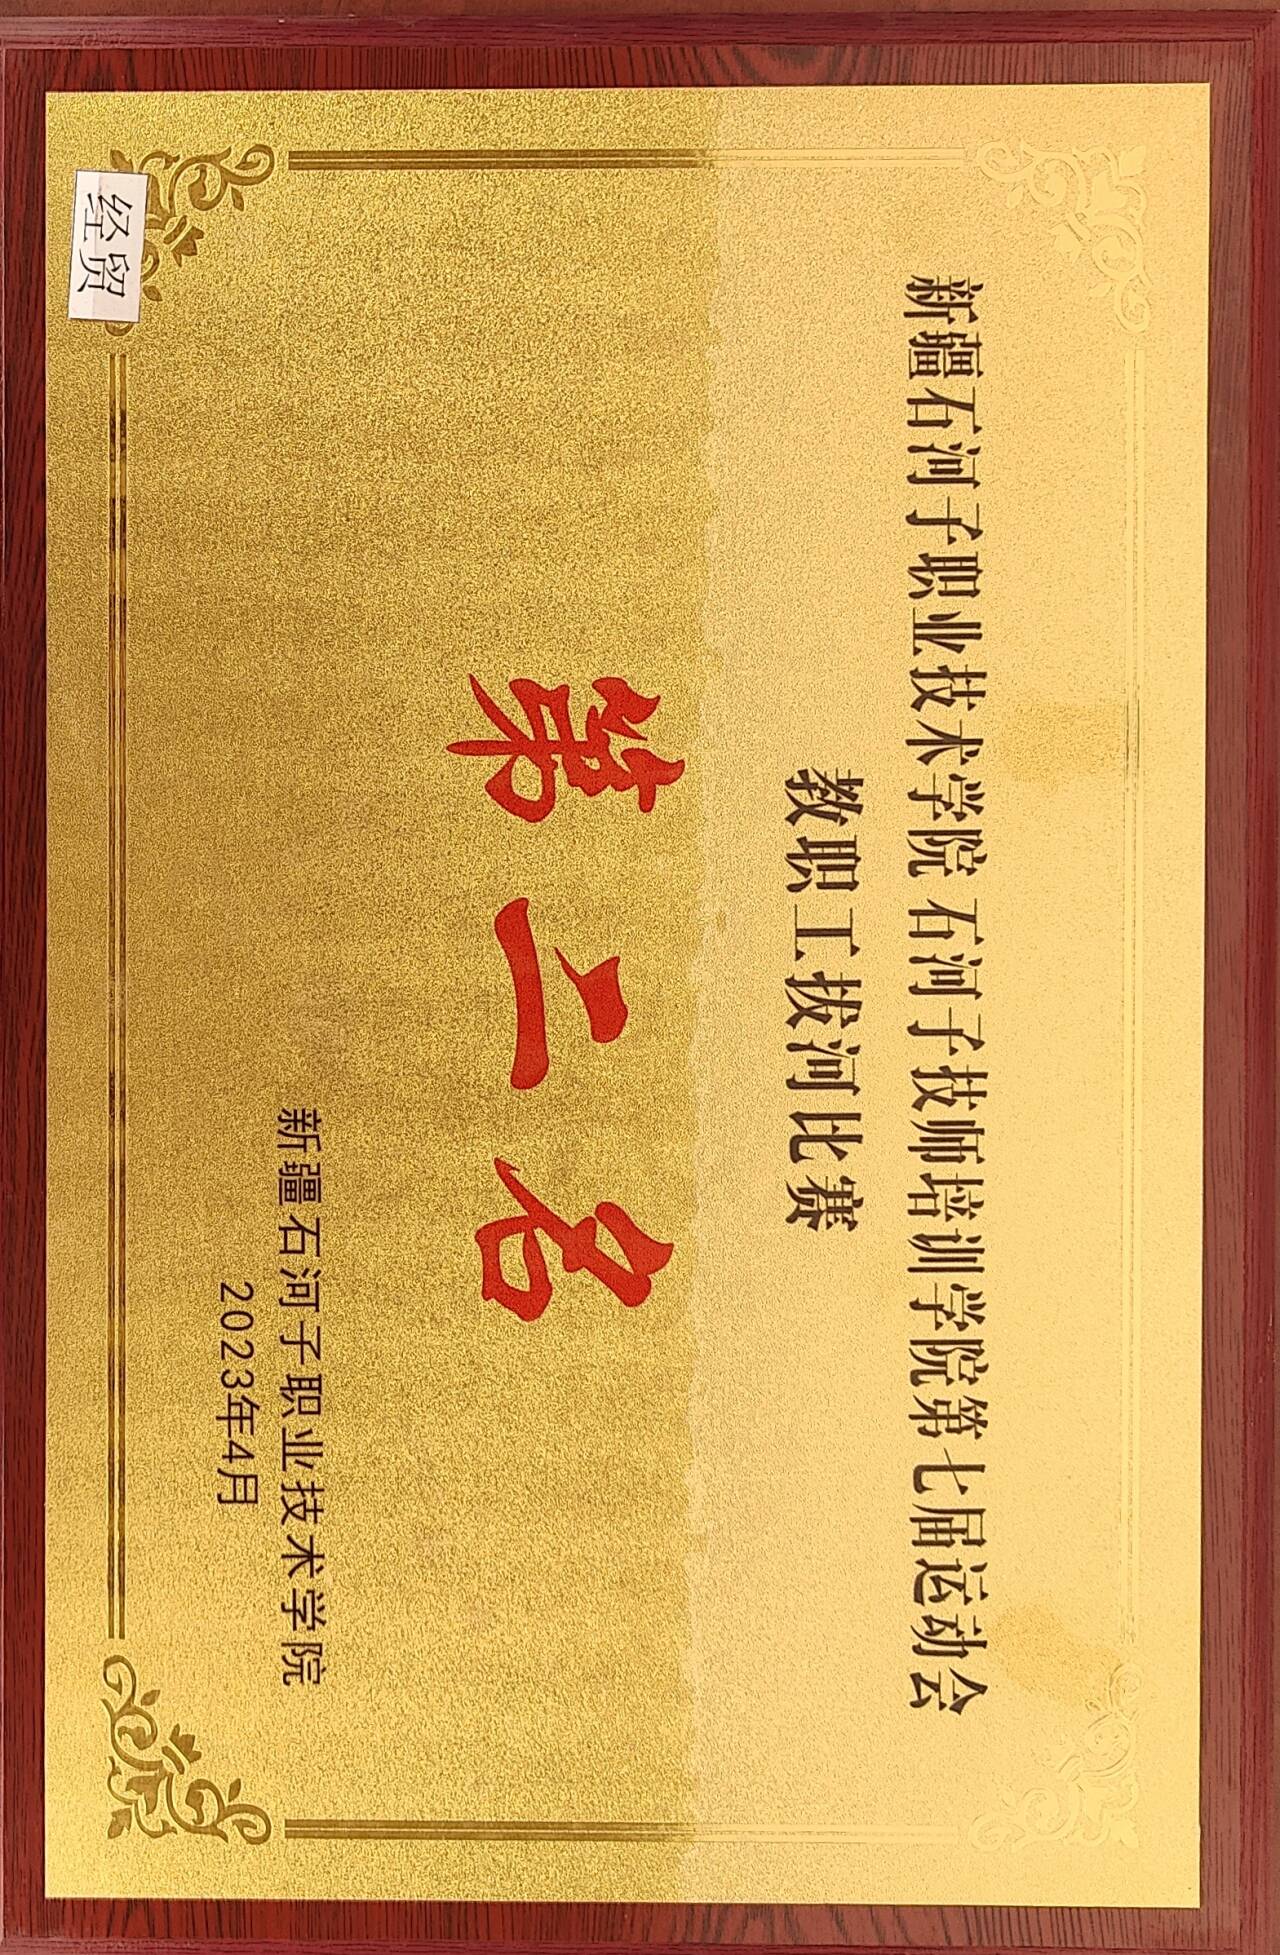 新疆石河子职业技术学院 石河子技师培训学院第七届运动会
教职工拔河比赛
第二名
新疆石河子职业技术学院
2023年4月
经贸